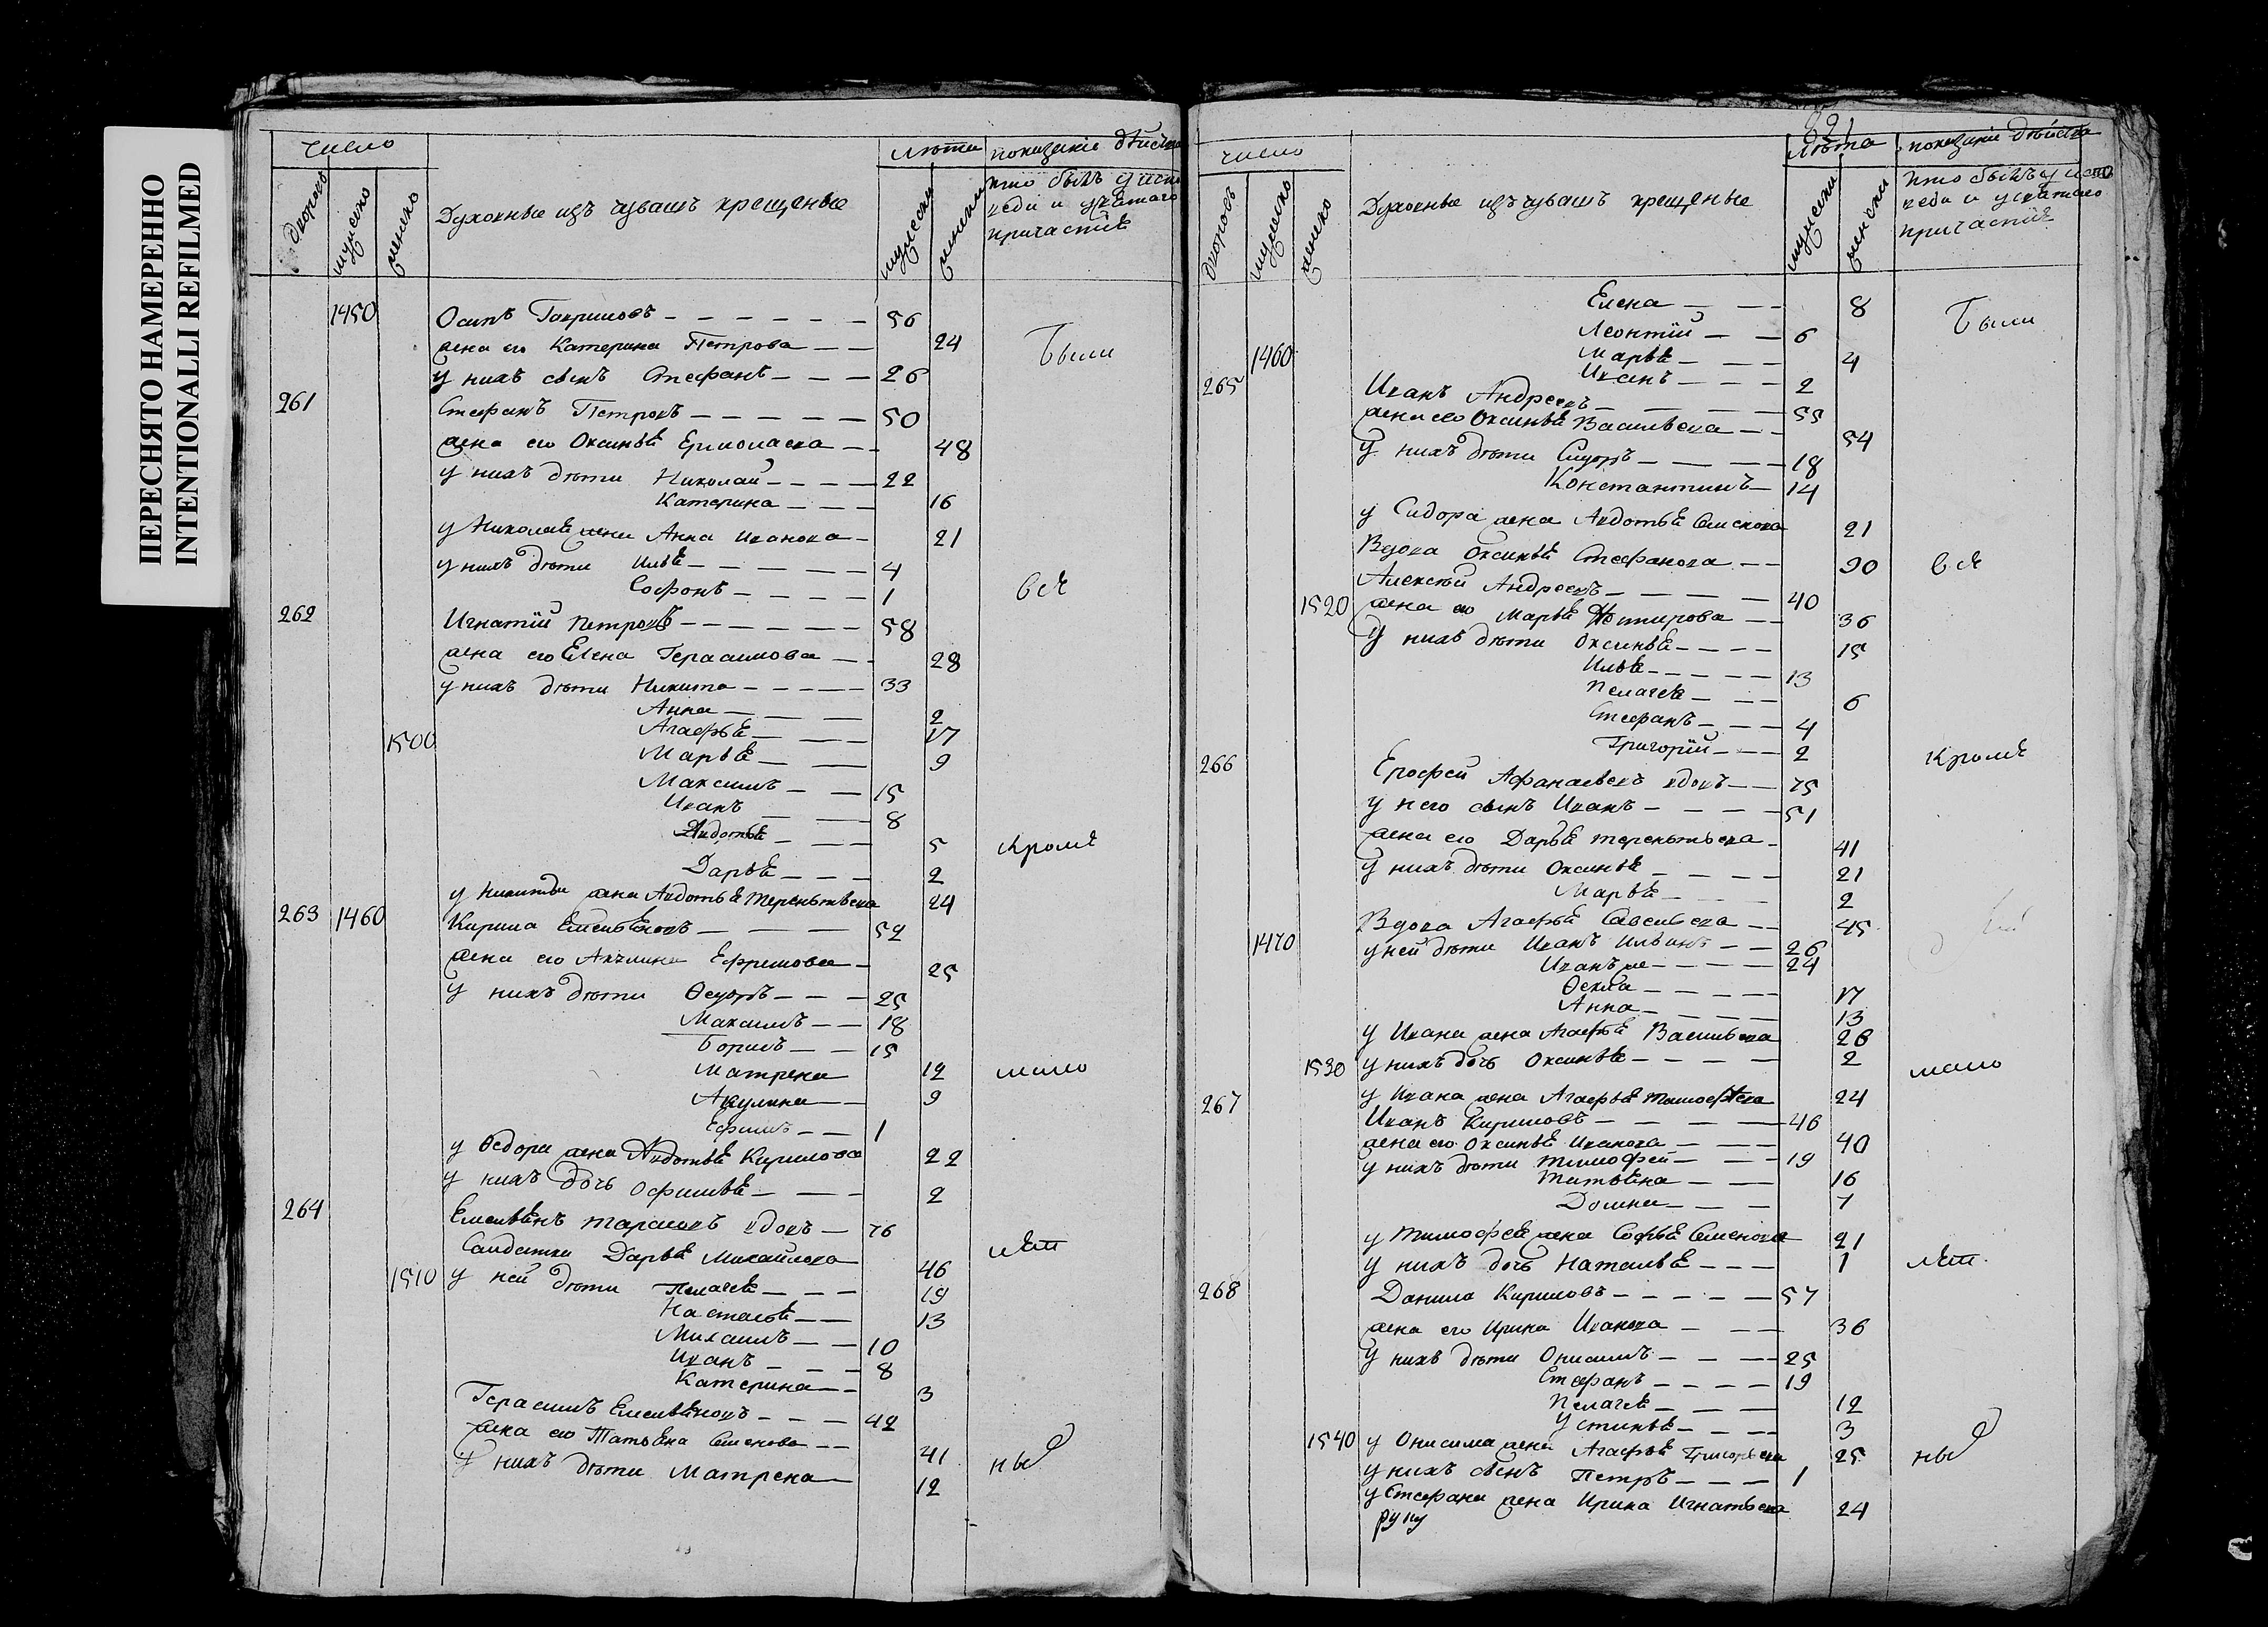 ПЕРЕСНЯТО НАМЕРЕННО
INTENTIONALLI REFILMED
число
дворовъ
мужеско
женско
Духовные изъ чувашъ крещеные
лѣта
мужески
женски
показаніе дѣйства
кто былъ у испо
веди и у святаго
причастія
1450 Осипъ Гаврилов — 56
жена его Катерина Петрова — 24 Были
у нихъ сынъ Стефанъ — 26
261 Стефанъ Петровъ — 50
жена его Оксинья Ермолаева — 48
у нихъ дѣти Николай — 22
Катерина — 16
у Николая жена Анна Иванова — 21
у нихъ дѣти Илья — 4
Софонъ — 1 всѣ
262 Игнатій Петровъ — 58
жена его Елена Герасимова — 28
у нихъ дѣти Никита — 33
Анна — 2
1500 Агафья — 17
Марья — 9
Максимъ — 15
Иванъ — 8
Авдотья — 5 кромѣ
Дарья — 2
у Никиты жена Авдотья Терентьева 24
263 1460 Кирила Емельяновъ — 52
жена его Акулина Ефремова — 25
у нихъ дѣти Ѳедоръ — 25
Максимъ — 18
Борисъ — 15
Матрена 12 мало
Акулина — 9
Ефимъ — 1
у Ѳедора жена Авдотья Кирилова 22
у нихъ дочь Офимья — 2
264 Емельянъ Тарасовъ вдовъ — 76
Салдатка Дарья Михайлова 46 лѣт
1510 у ней дѣти Пелагея — 19
Настасья — 13
Михаилъ — 10
Иванъ — 8
Катерина — 3
Герасимъ Емельяновъ — 42
жена его Татьяна Семенова — 41
у нихъ дѣти Матрена — 12 ных
821
число
дворовъ
мужеско
женско
Духовные изъ чувашъ крещеные
лѣта
мужески
женски
показаніе дѣйства
кто былъ у испо
веди и у святаго
причастія
Елена — 8
Леонтій — 6 Были
1460 Марья — 4
Иванъ — 2
265 Иванъ Андреевъ — 55
жена его Оксинья Васильева — 54
у нихъ дѣти Сидоръ — 18
Константинъ — 14
у Сидора жена Авдотья Семенова 21
Вдова Оксинья Стефанова — 90 всѣ
Алексѣй Андреевъ — 40
1520 жена его Марья — 36
у нихъ дѣти Оксинья — 15
Илья — 13
Пелагея — 6
Стефанъ — 4
Григорій — 2
266 Ерофей Афанасьевъ вдовъ — 75 кромѣ
у него сынъ Иванъ — 51
жена его Дарья Терентьева — 41
у нихъ дѣти Оксинья — 21
Марья — 2
Вдова Агафья Савельева — 45
1470 у ней дѣти Иванъ Ильинъ — 26
Иванъ же — 24
Ѳекла — 17
Анна — 13
у Ивана жена Агафья Васильева 26
1530 у нихъ дочь Оксинья — 2 мало
у Ивана жена Агафья Тимофѣева 24
267 Иванъ Кириловъ — 46
жена его Оксинья Иванова — 40
у нихъ дѣти Тимофей — 19
Татьяна — 16
Домна — 7
у Тимофея жена Софья Семенова 21
у нихъ дочь Наталья — 1 лѣт
268 Данила Кириловъ — 57
жена его Ирина Иванова — 36
у нихъ дѣти Онисимъ — 25
Стефанъ — 19
Пелагея — 12
Устинья — 3
1540 у Онисима жена Агафья Григорьева 25 ных
у нихъ сынъ Петръ — 1
у Стефана жена Ирина Игнатьева 24
руку